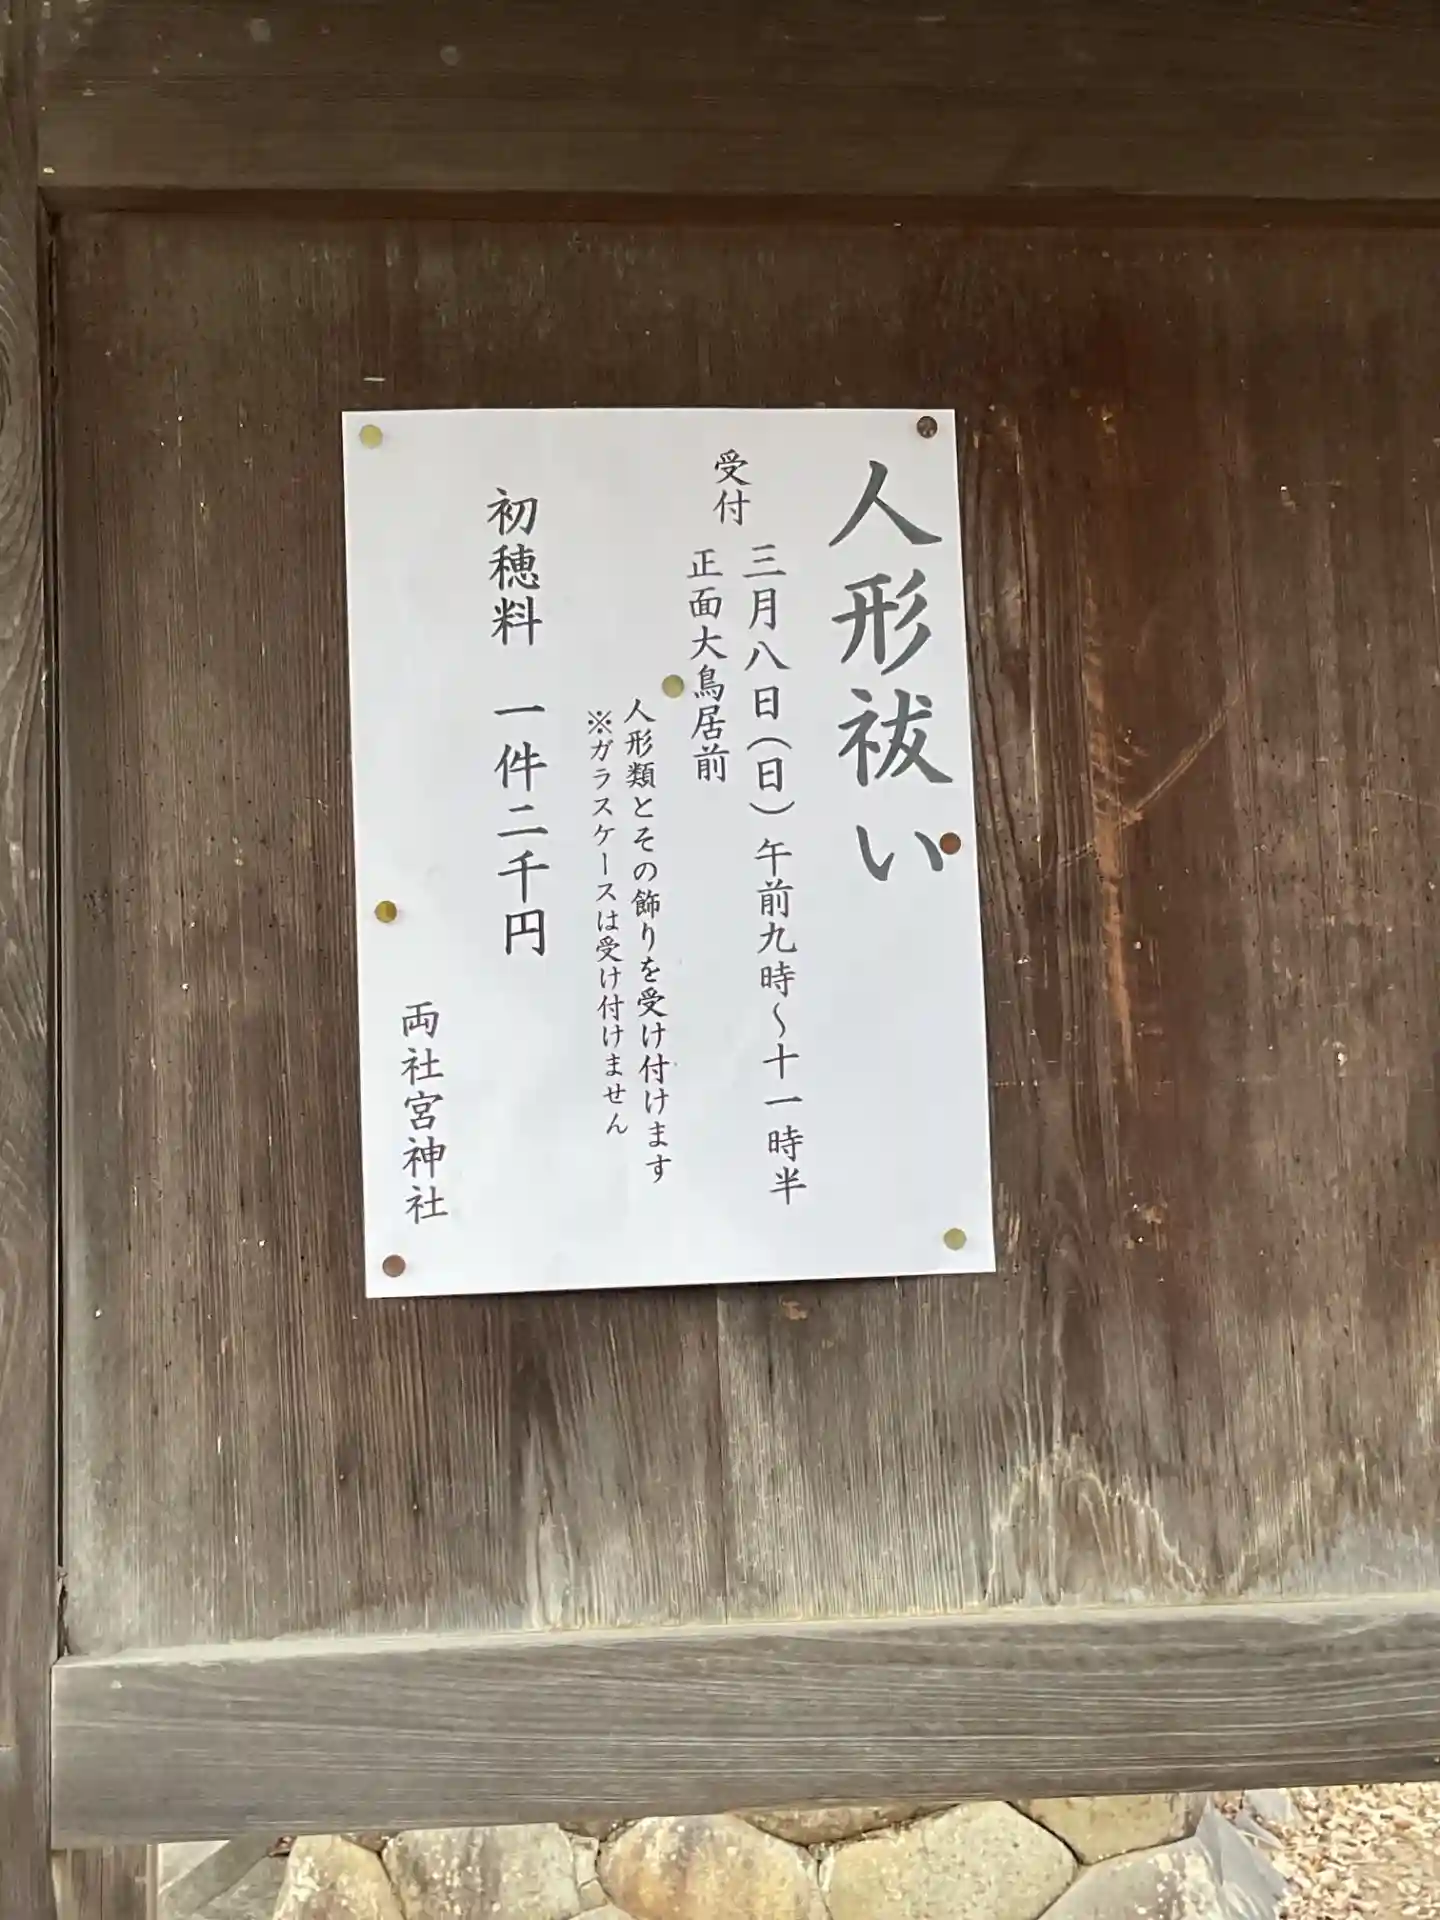 人形祓い
受付
三月八日（日）午前九時～十一時半
正面大鳥居前
人形類とその飾りを受け付けます
※ガラスケースは受け付けません
初穂料　一件二千円
両社宮神社